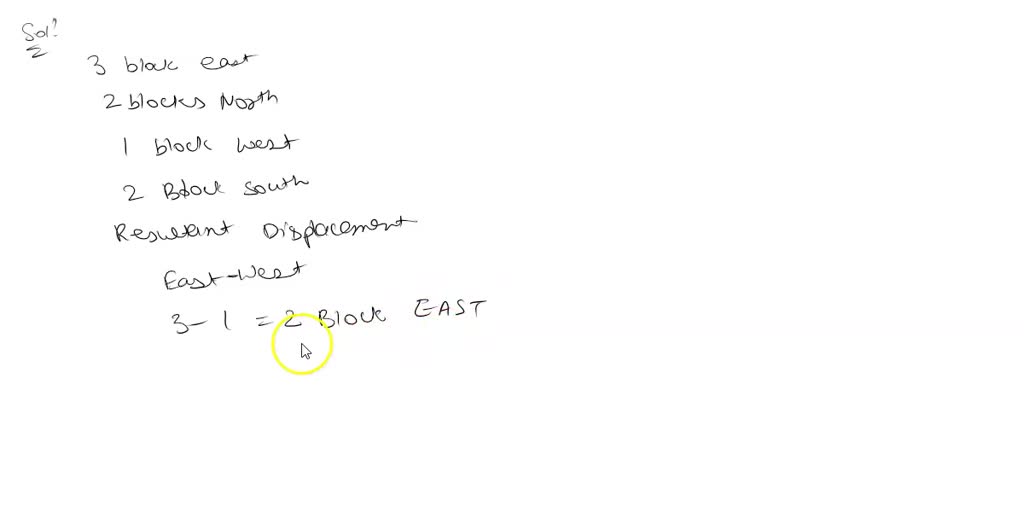 Sol?
3 block east
2 blocks North
1 block west
2 Block south
Resultant Displacement
East-West
3-1 = 2 Block EAST